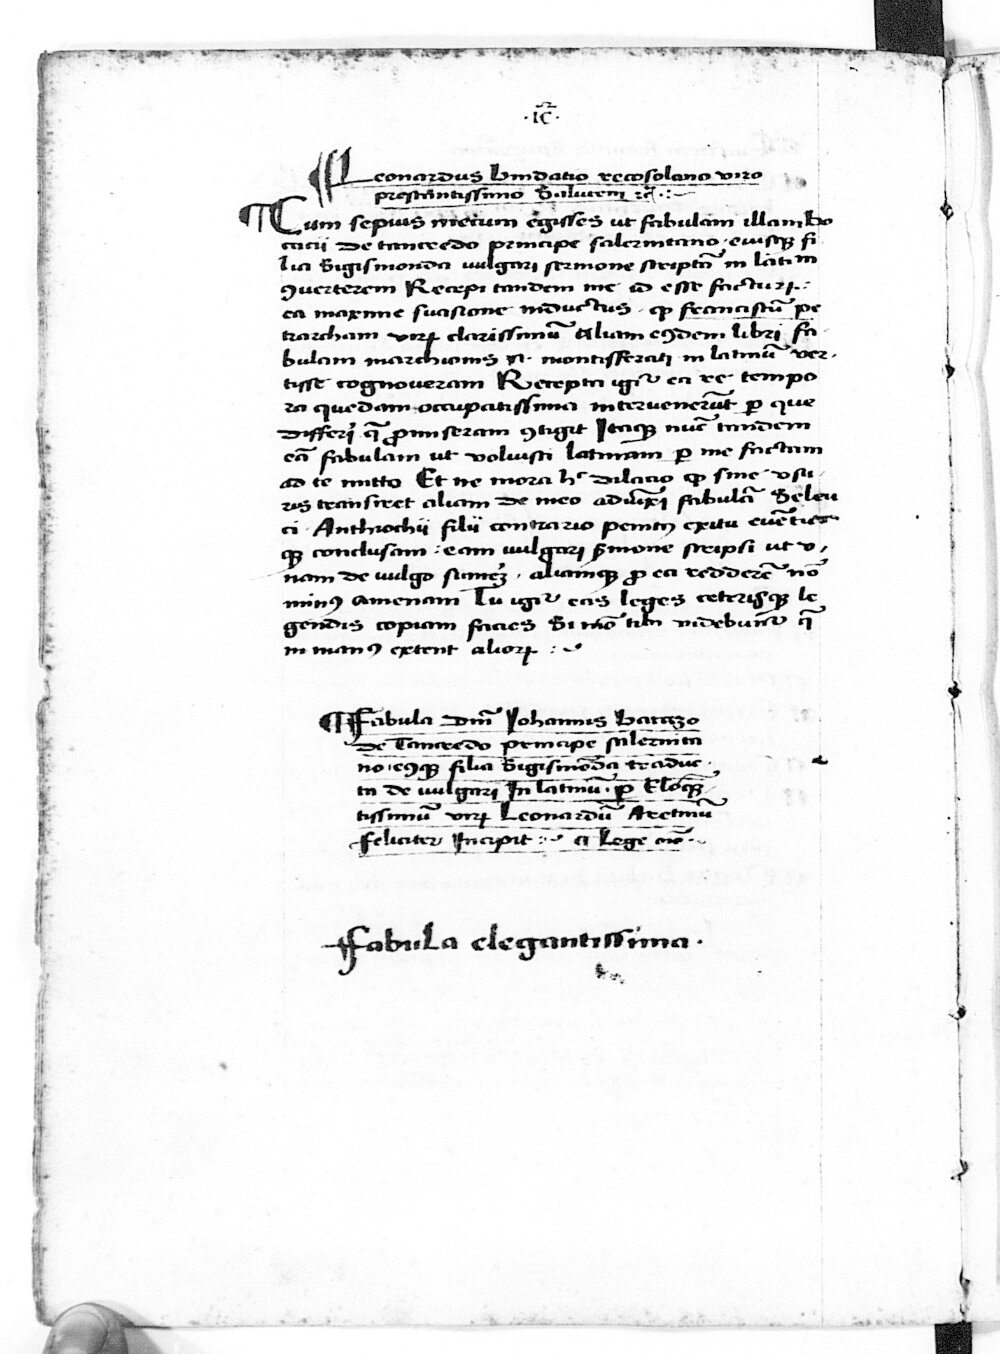 ·IC̄·
Leonardus Bindatio recosolano viro
prestantissimo Salutem
Cum sepius mecum egisses ut fabulam illam bo
cacii de tancredo principe salernitano · eiusq̨ fi
lia Sigismonda vulgari sermone scriptā in latin
ꝯverterem Recepi tandem me id esse facturꝝ:
ea maxime suasione inductus · ꝙ franciscū pe
trarcham virꝝ clarissimū Aliam eiꝰdem libri fa
bulam marchionis montisferati in latinū ver-
tisse cognoveram Recepta igiᷣ ea re tempo
ra quedam occupatissima intervenerūt ꝑ que
differri q̄ ꝓmiseram ꝯtigit Itaq̨ nūc tandem
eā fabulam ut voluisti latinam ꝑ me factam
ad te mitto Et ne mora hᵉ dilatio ꝙ sine usu
ris transiret aliam de meo adiūxi fabulā Seleu
ci · Anthiochii filii contrario penitꝰ exitu
q̨ conclusam : eam vulgari s̄mone scripsi ut u,
nam de vulgo · aliamq̨ ꝓ ea redderē nō
minꝰ amenam Tu igiᷣ eas leges ceterisq̨ le
gendis copiam facies Si nō tibi videbunᷣ q̄
in manꝰ extent aliorꝝ :
Fabula Dn̄i Johannis
de Tancredo principe salernita
no · eiꝰq̨ filia Sigismōda traduc
ta de vulgari In latinū · ꝑ Eloq̨
tissimū virꝝ Leonardū Aretinū
feliciter Incipit : Lege
Fabula elegantissima ·